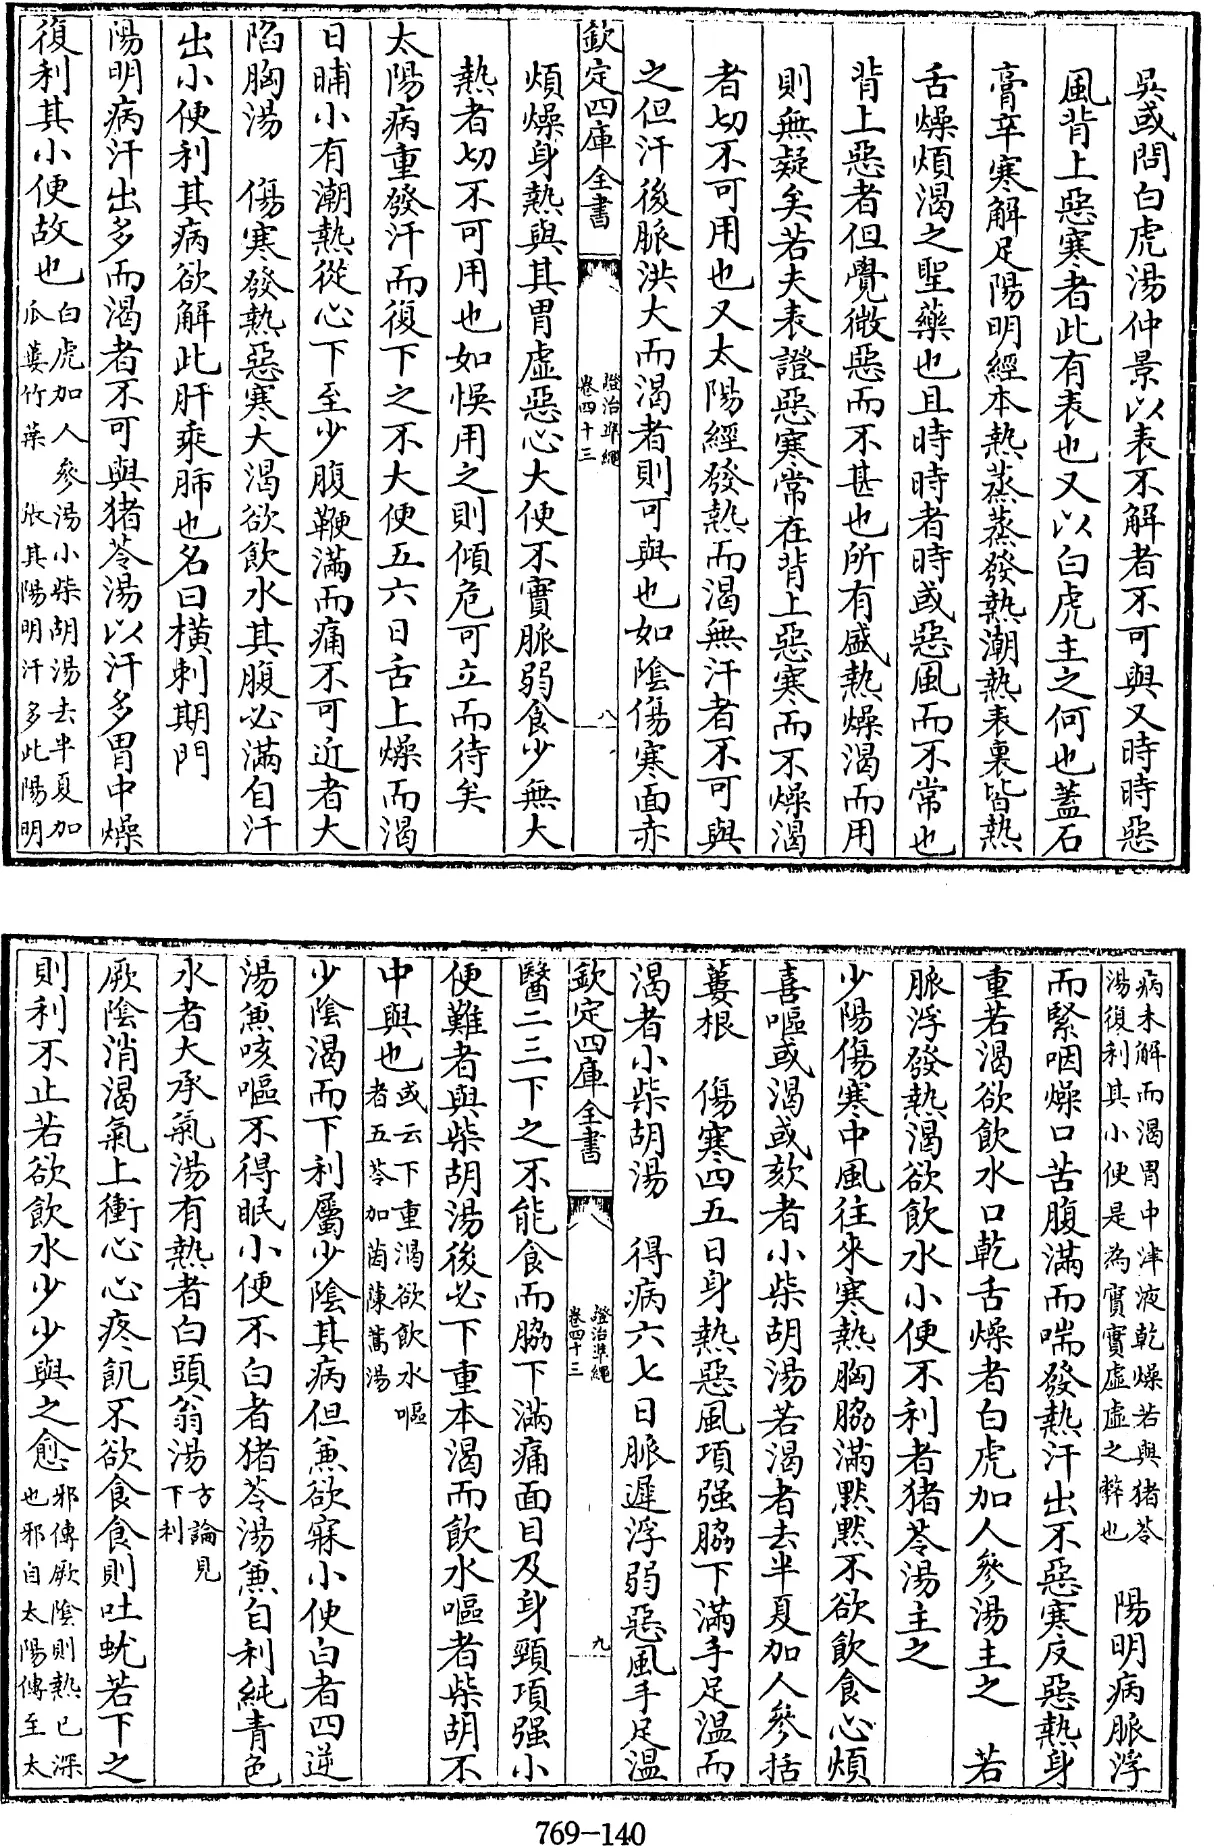 吳或問白虎湯仲景以表不解者不可與又時時惡
風背上惡寒者此有表也又以白虎主之何也蓋石
膏辛寒解足陽明經本熱蒸蒸發熱潮熱表裏皆熱
舌燥煩渴之聖藥也且時時者時或惡風而不常也
背上惡者但覺微惡而不甚也所有盛熱燥渴而用
則無疑矣若夫表證惡寒常在背上惡寒而不燥渴
者切不可用也又太陽經發熱而渴無汗者不可與
之但汗後脈洪大而渴者則可與也如陰傷寒面赤
欽定四庫全書 證治準繩 卷四十三 八
煩燥身熱與其胃虛惡心大便不實脈弱食少無大
熱者切不可用也如悞用之則傾危可立而待矣
太陽病重發汗而復下之不大便五六日舌上燥而渴
日晡小有潮熱從心下至少腹鞕滿而痛不可近者大
陷胸湯 傷寒發熱惡寒大渴欲飲水其腹必滿自汗
出小便利其病欲解此肝乘肺也名曰橫刺期門
陽明病汗出多而渴者不可與猪苓湯以汗多胃中燥
復利其小便故也 白虎加人參湯小柴胡湯去半夏加
瓜蔞竹葉 張其陽明汗多此陽明
病未解而渴胃中津液乾燥若與猪苓
湯復利其小便是為實實虛虛之弊也 陽明病脈浮
而緊咽燥口苦腹滿而喘發熱汗出不惡寒反惡熱身
重若渴欲飲水口乾舌燥者白虎加人參湯主之 若
脈浮發熱渴欲飲水小便不利者猪苓湯主之
少陽傷寒中風往來寒熱胸脇滿黙黙不欲飲食心煩
喜嘔或渴或欬者小柴胡湯若渴者去半夏加人參括
蔞根 傷寒四五日身熱惡風項强脇下滿手足溫而
渴者小柴胡湯 得病六七日脈遲浮弱惡風手足溫
欽定四庫全書 證治準繩 卷四十三 九
醫二三下之不能食而脇下滿痛面目及身頸項强小
便難者與柴胡湯後必下重本渴而飲水嘔者柴胡不
中與也 或云下重渴欲飲水嘔
者五苓加茵蔯蒿湯
少陰渴而下利屬少陰其病但兼欲寐小便白者四逆
湯兼咳嘔不得眠小便不白者猪苓湯兼自利純青色
水者大承氣湯有熱者白頭翁湯 方論見
下利
厥陰消渴氣上衝心心疼飢不欲食食則吐蚘若下之
則利不止若欲飲水少少與之愈 邪傳厥陰則熱已深
也邪自太陽傳至太
769-140